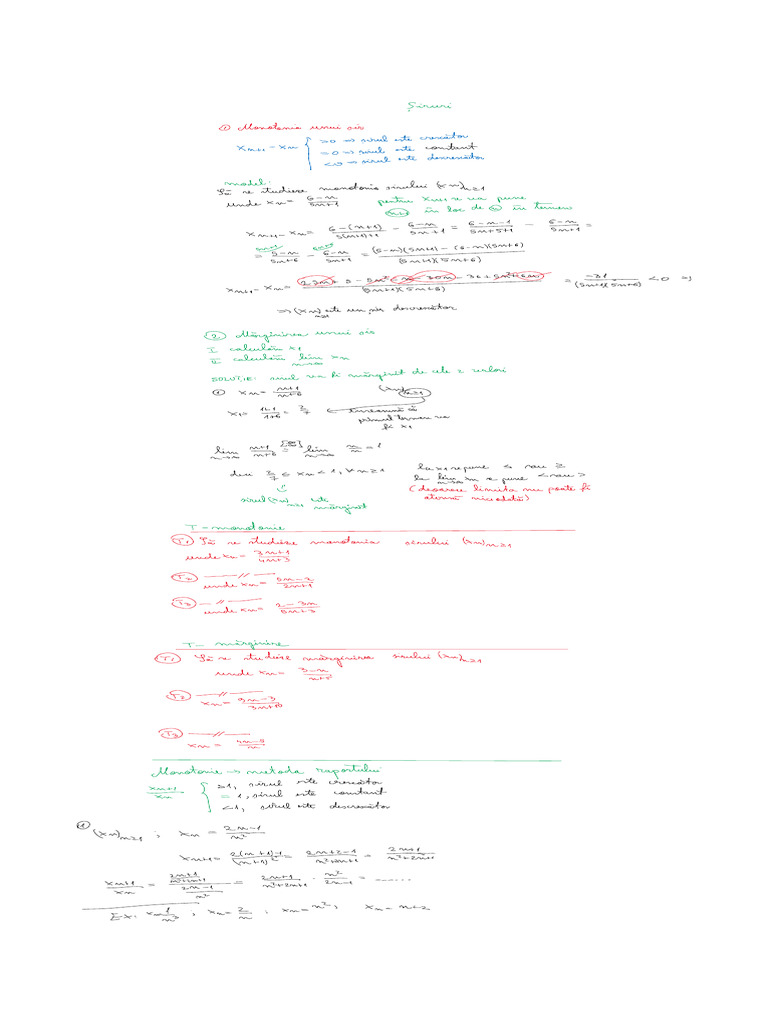 Șiruri
① Monotonia unui șir
x_{n+1} - x_n { >0 ⇒ șirul este crescător
=0 ⇒ șirul este constant
<0 ⇒ șirul este descrescător
model:
Să se studieze monotonia șirului (x_n)_{n≥1}
unde x_n = (6-n)/(5n+1) pentru x_{n+1} se va pune
n+1 în loc de n în termen
x_{n+1} - x_n = (6-(n+1))/(5(n+1)+1) - (6-n)/(5n+1) = (6-n-1)/(5n+5+1) - (6-n)/(5n+1) =
= ^{5n+1)} (5-n)/(5n+6) - ^{5n+6)} (6-n)/(5n+1) = ((5-n)(5n+1) - (6-n)(5n+6))/((5n+1)(5n+6))
x_{n+1} - x_n = (25n + 5 - 5n² - n - 30n - 36 + 5n² + 6n)/((5n+1)(5n+6)) = -31/((5n+1)(5n+6)) < 0 ⇒
⇒ (x_n)_{n≥1} este un șir descrescător
② Mărginirea unui șir
I calculăm x_1
II calculăm lim_{n→∞} x_n
SOLUȚIE: șirul va fi mărginit de cele 2 valori
① x_n = (n+1)/(n+6) (x_n)_{n≥1}
x_1 = (1+1)/(1+6) = 2/7 înseamnă că
primul termen va
fi x_1
lim_{n→∞} (n+1)/(n+6) =^{[∞/∞]} lim_{n→∞} n/n = 1
deci 2/7 ≤ x_n < 1, ∀ n≥1 la x_1 se pune ≤ sau ≥
la lim_{n→∞} x_n se pune < sau >
⇓ (deoarece limita nu poate fi
șirul (x_n)_{n≥1} este atinsă niciodată)
mărginit
T - monotonie
T1 Să se studieze monotonia șirului (x_n)_{n≥1}
unde x_n = (3n+1)/(4n+3)
T2 —//—
unde x_n = (5n-2)/(2n+1)
T3 —//—
unde x_n = (2-3n)/(5n+3)
T - mărginire
T1 Să se studieze mărginirea șirului (x_n)_{n≥1}
unde x_n =
T2 —//—
x_n =
T3 —//—
x_n =
Monotonie → metoda raportului
x_{n+1}/x_n { >1, șirul este crescător
= 1, șirul este constant
<1, șirul este descrescător
① (x_n)_{n≥1} ; x_n = (2n-1)/n²
x_{n+1} = (2(n+1)-1)/(n+1)² = (2n+2-1)/(n²+2n+1) = (2n+1)/(n²+2n+1)
x_{n+1}/x_n = ((2n+1)/(n²+2n+1))/((2n-1)/n²) = (2n+1)/(n²+2n+1) · n²/(2n-1) = ......
Ex: x_n = 1/n³ ; x_n = 2/n ; x_n = n² ; x_n = n+2